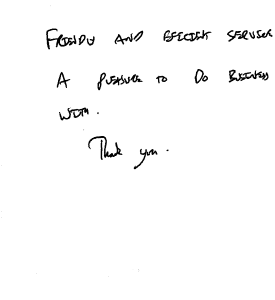 FRIENDLY AND EFFICIENT SERVICE
A PLEASURE TO DO BUSINESS
WITH.
Thank you.